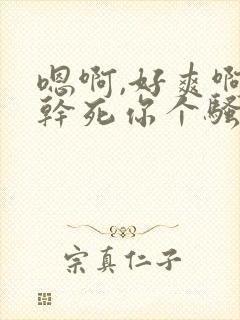 嗯啊,好爽啊
幹死你个骚
宗真仁子